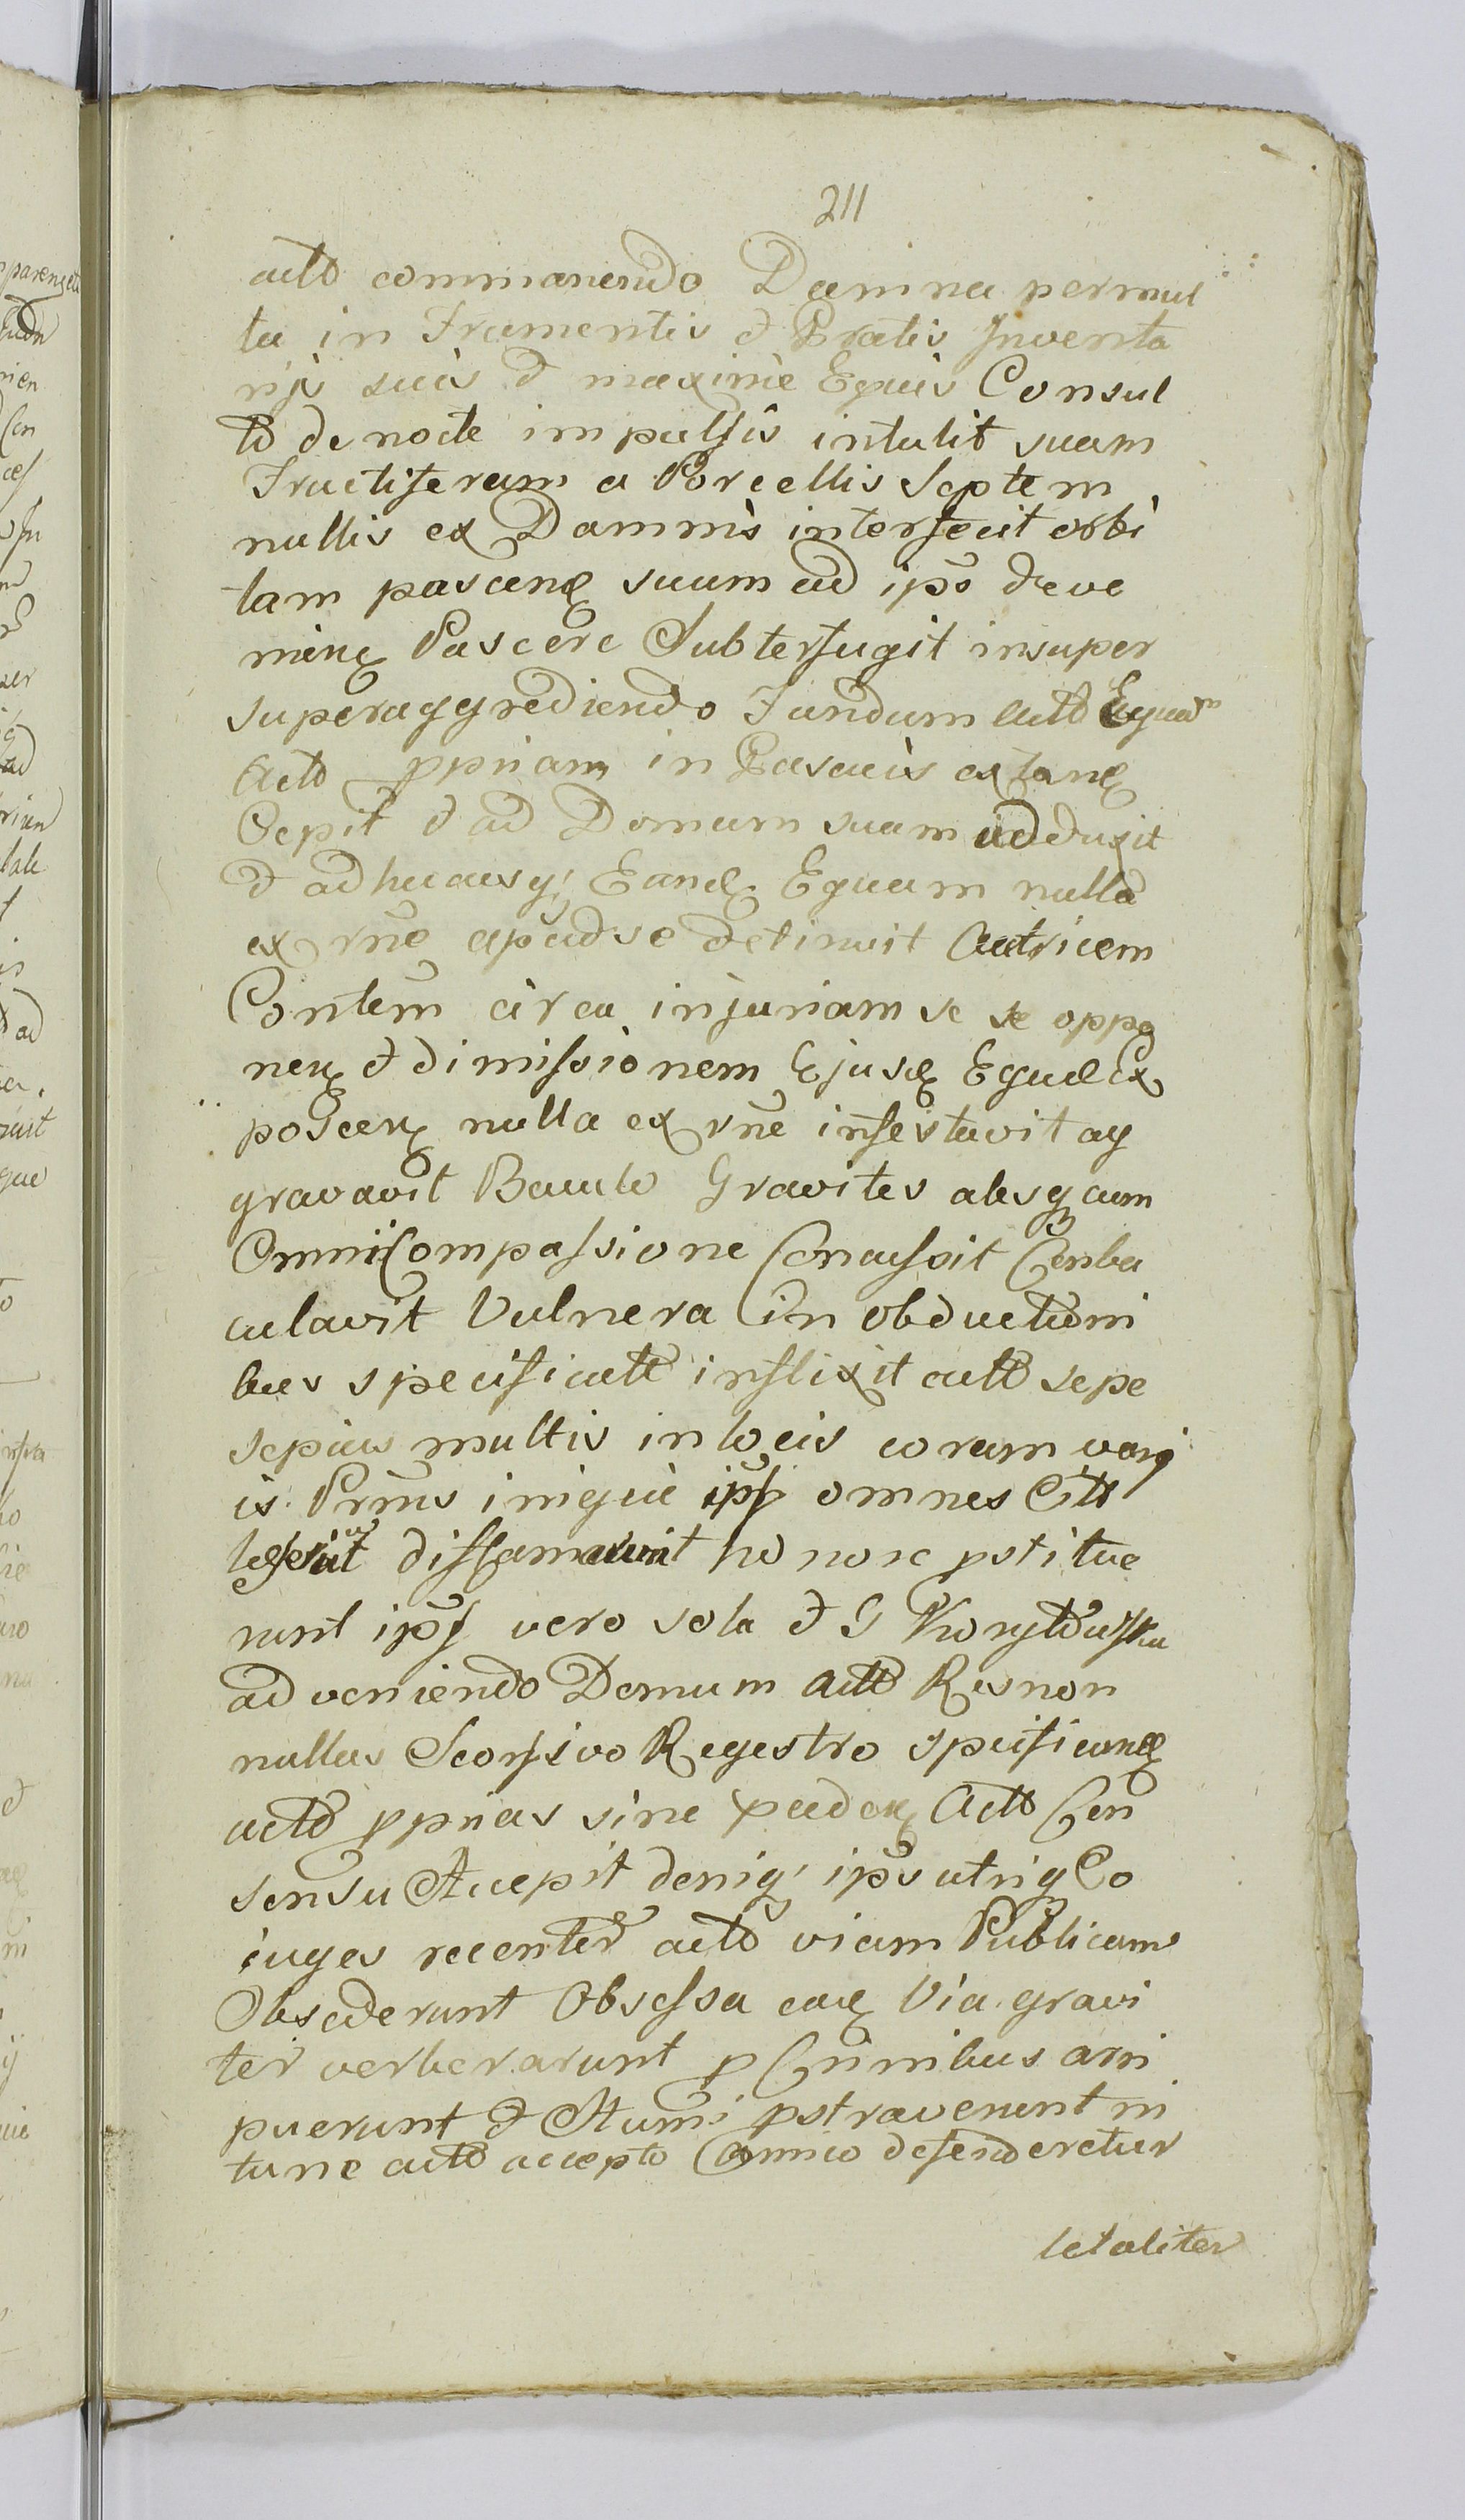 211
actô commanendo Damna permul
ta in Frumentis & Pratis Inventa
rijs suis & maxime Equis Consul
to de nocte impulsis intulit suam
Fructiferam a Porcellis Septem
nullis ex Damnis interfecit orbi
tam pascenđ suum ad ips̄ deve
nienđ Pascere Subterfugit insuper
superaggrediendo Fundum actô Equam
Actô ppriam in Pascuis extanđ
Cepit & ad Domum suam adduxit
& adhucusq, Eand. Equam nulla
ex rñe apud se detinuit Actricem
Contem̄ circa injuriam se se oppo
nen & dimissionem Ejusđ Equæ Ex
poscen nulla ex rñe infestavit ag
gravavit Baculo Graviter absq cum
Omni Compassione Concussit Conba
culavit Vulnera in obductioni
bus specificatâ inflixit actô sepe
sepius multis in locis coram varj
is Prm̄s inique ips̄ omnes Citt
leserunt diffamarunt honore pstitue
runt ips̄ vero sola & G Korytowska
adveniendo Domum actô Res non
nullas Scorsivo Regestro specificanđ
actô pprias sine quadam Actô Con
sensu Accepit deniq, ips̄ utriq Co
iuges recenter actô viam Publicam
Obsederunt Obsessa eađ Via gravi
ter verberarunt p Crinibus arri
puerunt & Humi pstraverunt ni
tunc actô accepto Amico defenderetur
letaliter